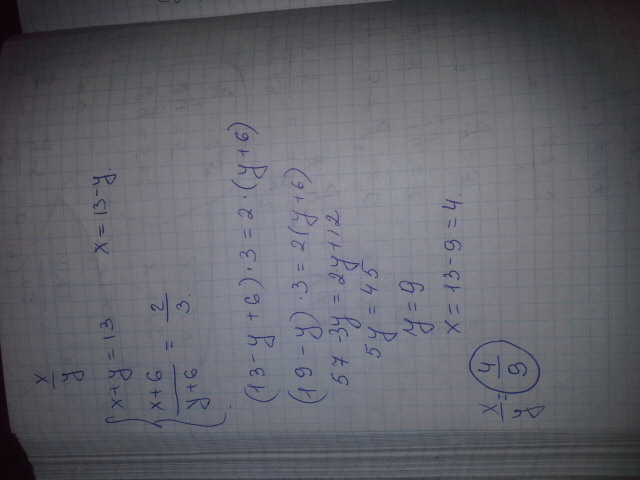 x/y
{ x+y=13   x=13-y.
{ (x+6)/(y+6) = 2/3.
(13-y+6)·3=2·(y+6)
(19-y)·3=2(y+6)
57-3y=2y+12
5y=45
y=9
x=13-9=4.
x/y=4/9